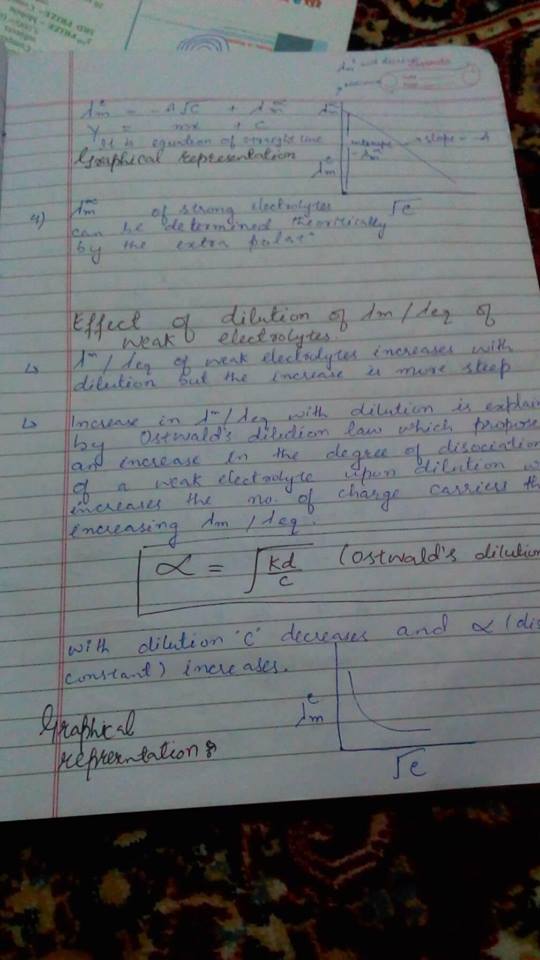 3RD PRIZE
λm^c = -A√C + λm^∞
Y = mx + c
It is equation of straight line
Graphical representation
λm^c
intercept = λm^∞
slope = -A
√c
4) λm^∞ of strong electrolytes
can be determined theoritically
by the extra polatn
Effect of dilution of λm/λeq of
weak electrolytes.
↳ λm/λeq of weak electrolytes increases with
dilution but the increase is more steep
↳ Increase in λm/λeq with dilution is explain
by Ostwald's dilution law which propose
an increase in the degree of disociation
of a weak electrolyte upon dilution w
increases the no. of charge carriers th
increasing λm/λeq.
α = √kd/c (Ostwald's dilution
with dilution 'C' decreases and α (dis
constant) increases.
Graphical
represntation:
λm^c
√c